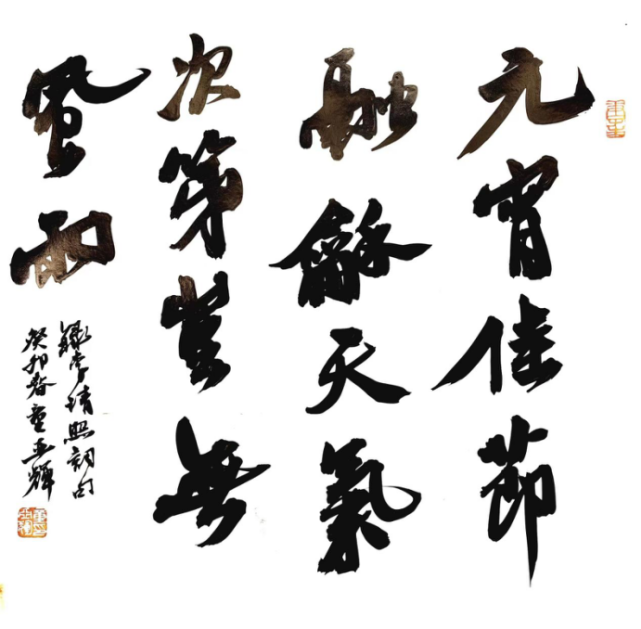 元宵佳節
融龢天氣
次第豈無
風雨
錄李清照詞句
癸卯春童亚輝